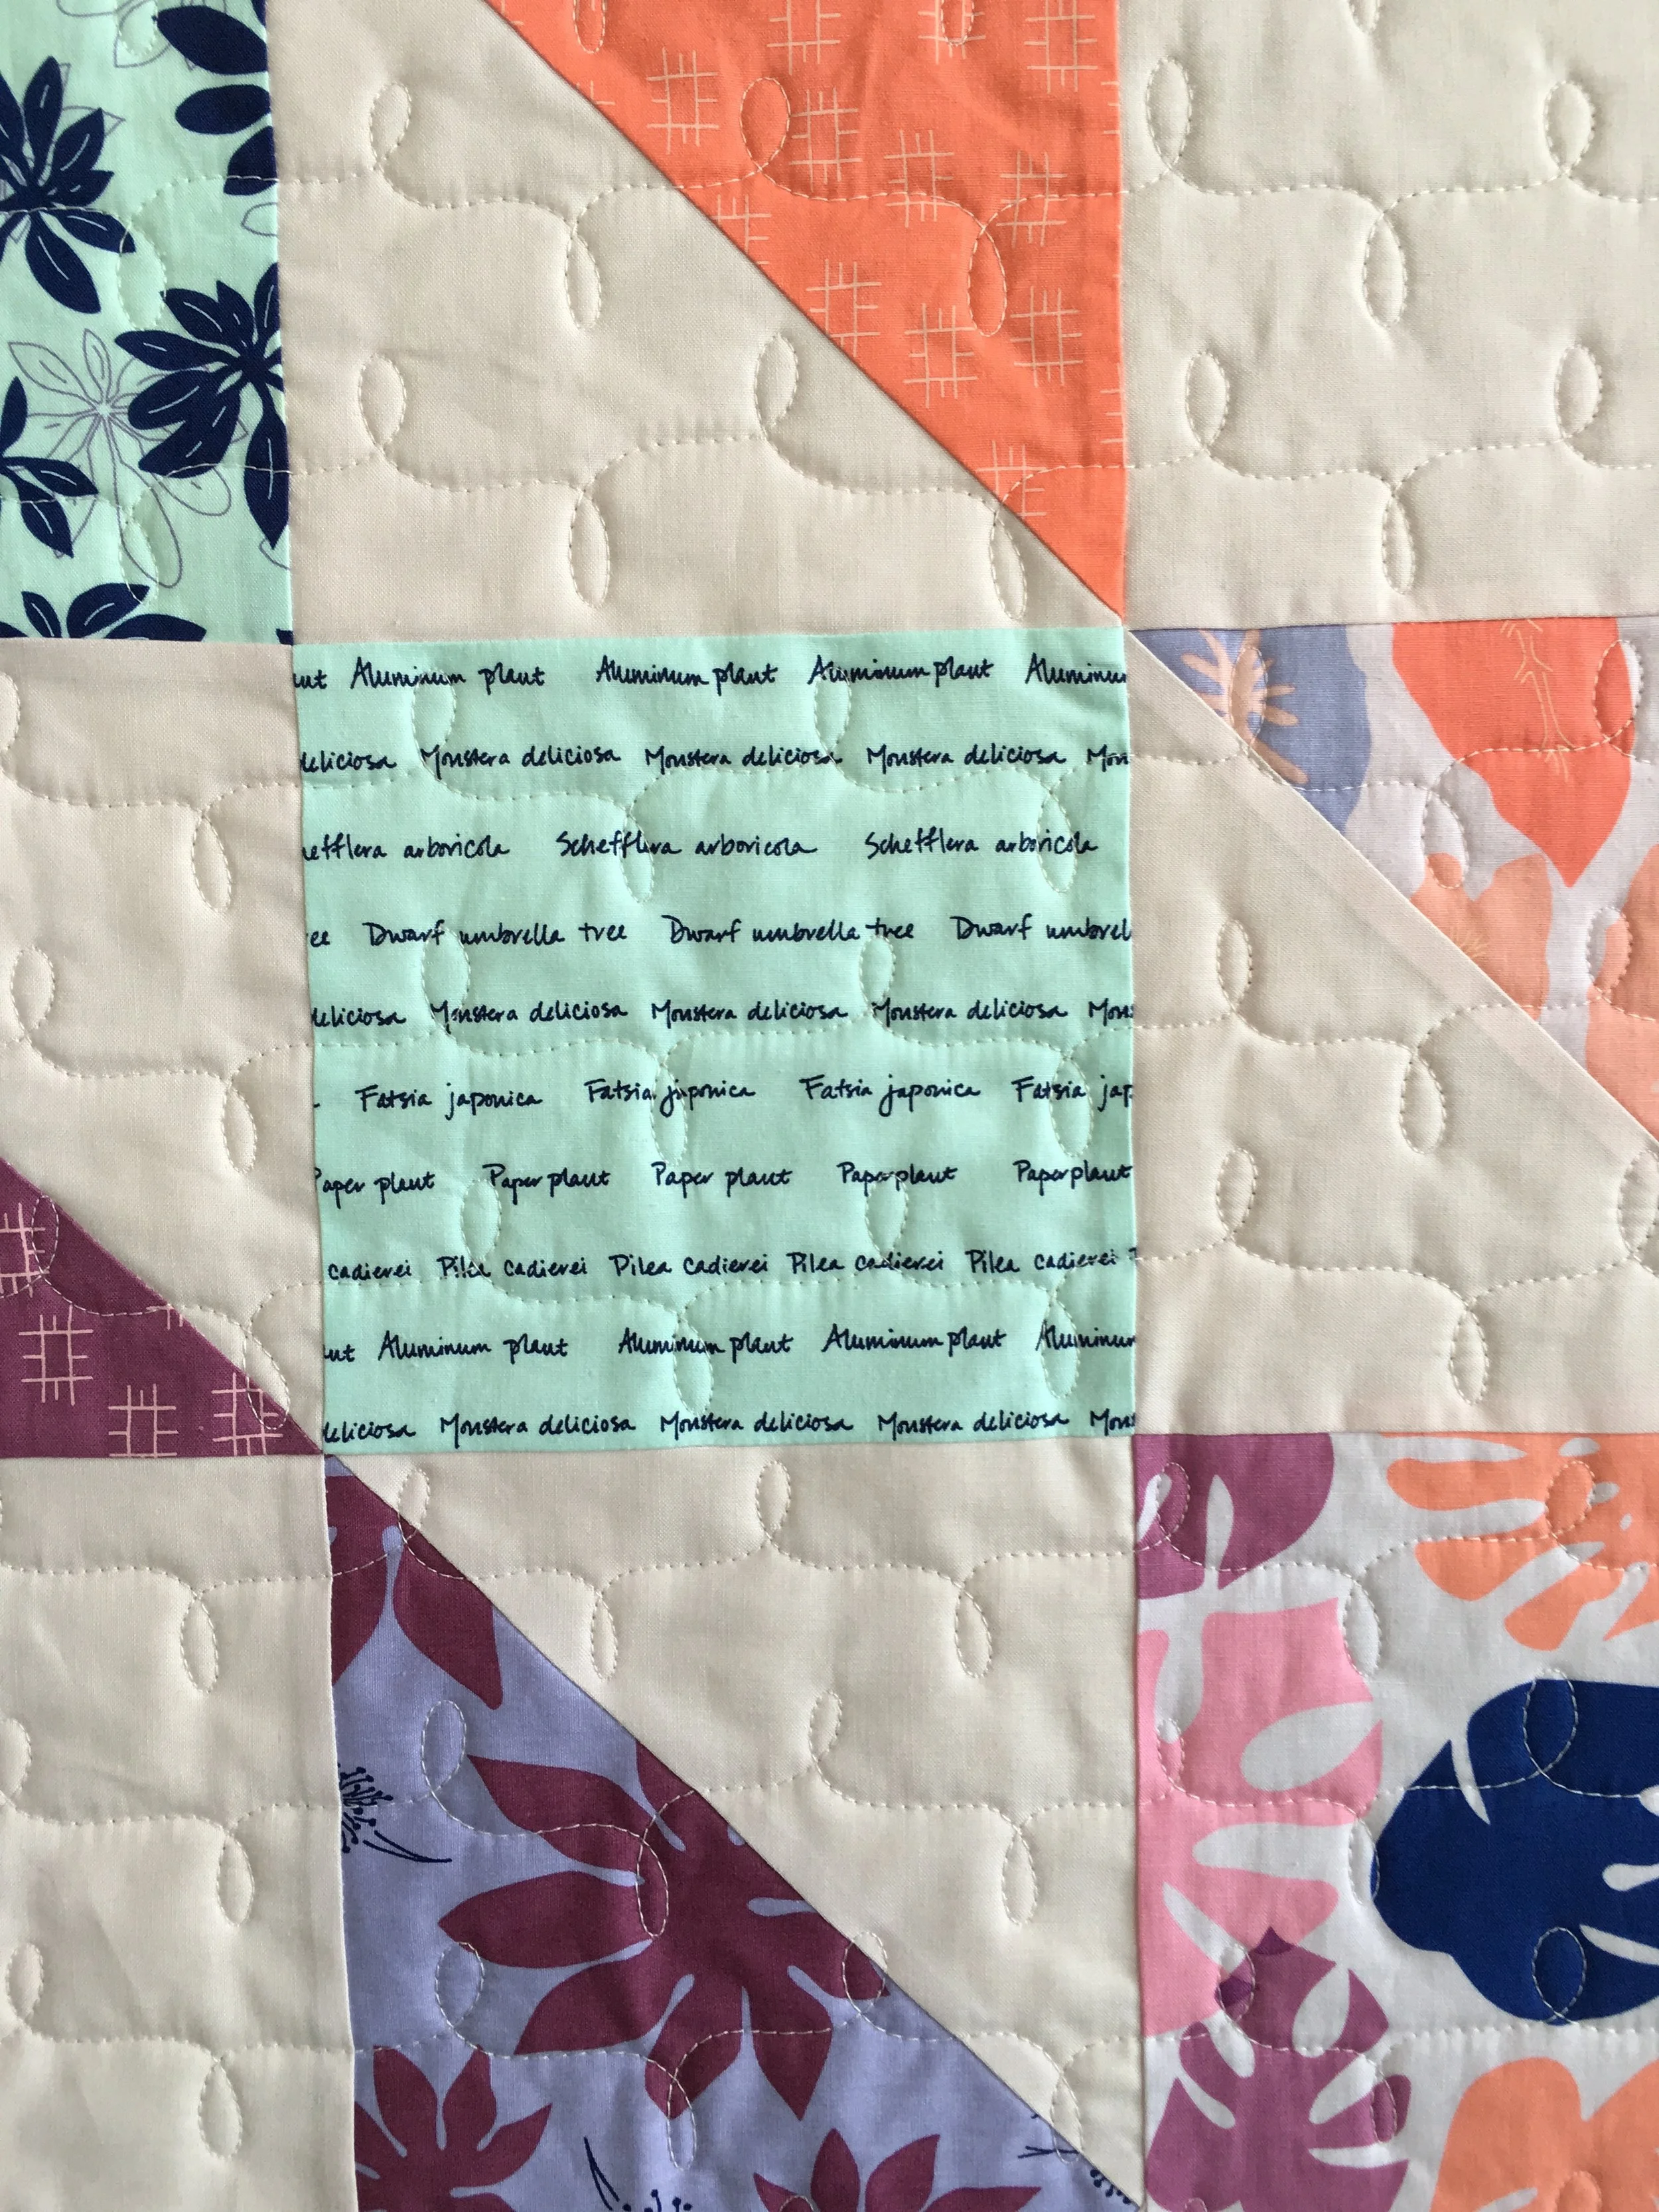 ut Aluminum plant Aluminum plant Aluminum plant Aluminu
deliciosa Monstera deliciosa Monstera deliciosa Monstera deliciosa Mon
hefflera arboricola Schefflera arboricola Schefflera arboricola
ee Dwarf umbrella tree Dwarf umbrella tree Dwarf umbrel
deliciosa Monstera deliciosa Monstera deliciosa Monstera deliciosa Mons
Fatsia japonica Fatsia japonica Fatsia japonica Fatsia jap
Paper plant Paper plant Paper plant Paper plant Paper plant
cadierei Pilea cadierei Pilea cadierei Pilea cadierei Pilea cadierei
ut Aluminum plant Aluminum plant Aluminum plant Aluminum
deliciosa Monstera deliciosa Monstera deliciosa Monstera deliciosa Mons